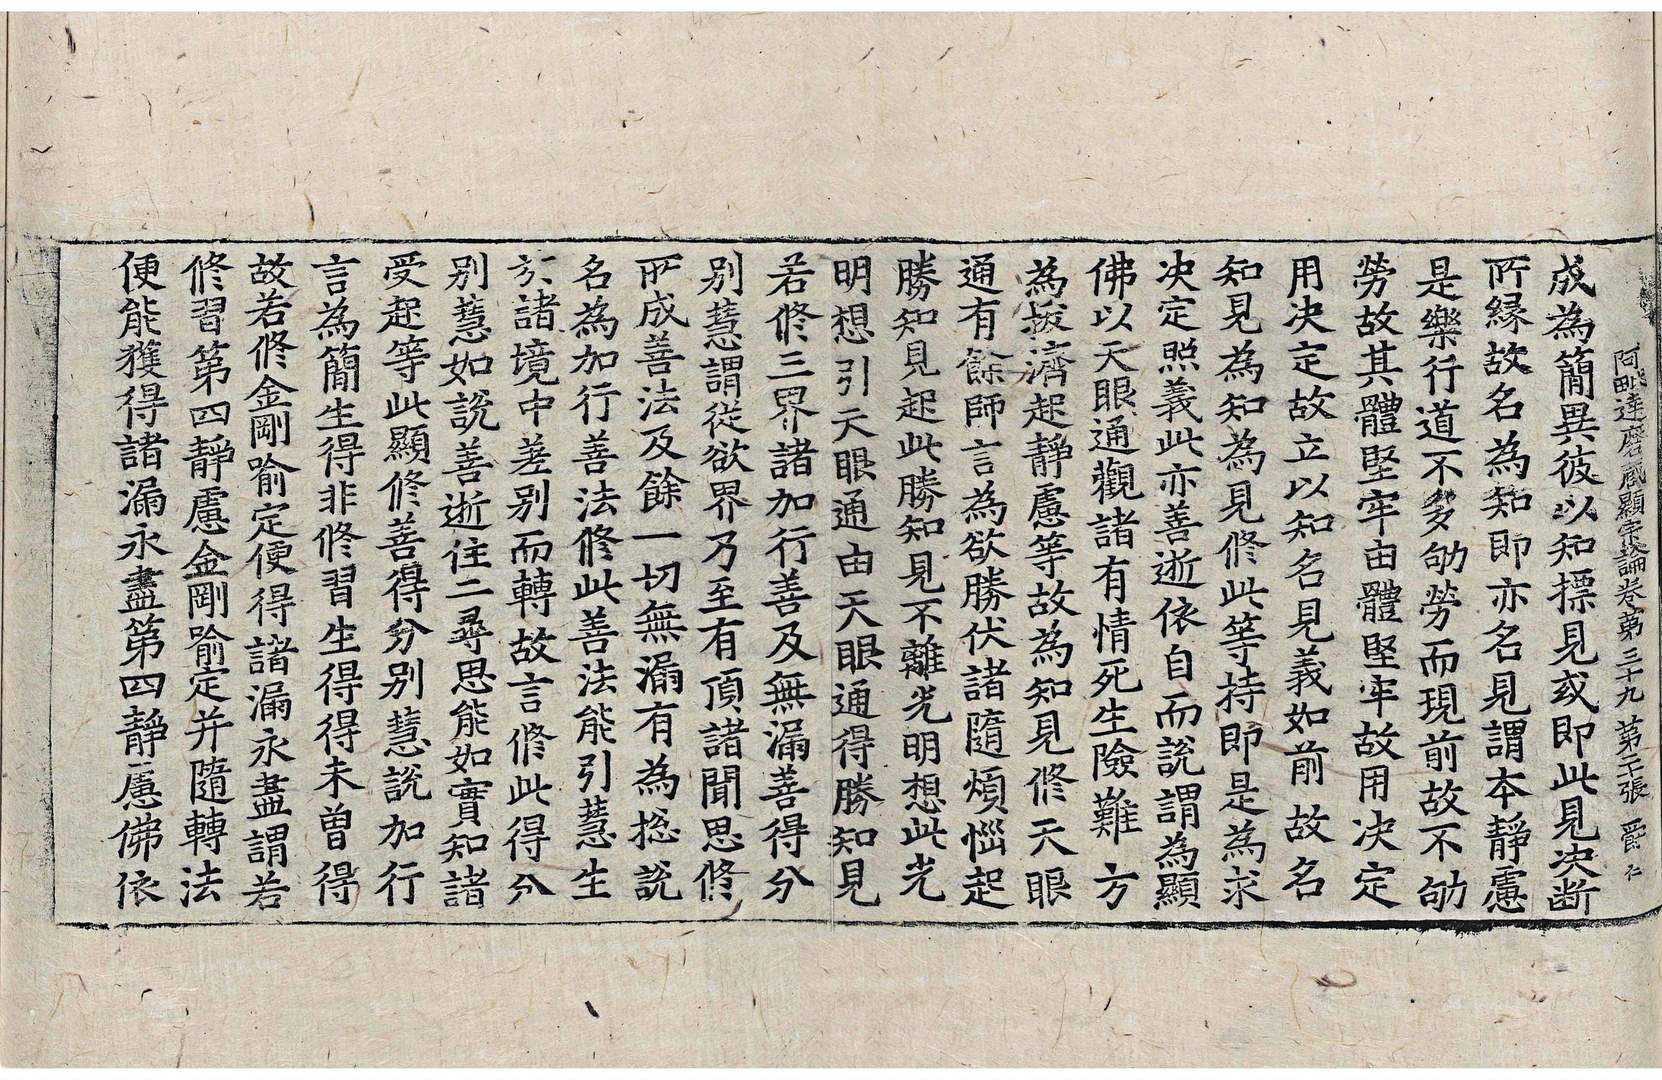 阿毗達磨藏顯宗論卷第三十九 第二十張 爵 仁
成為簡異彼以知摽見或即此見决断
所縁故名為知即亦名見謂本靜慮
是樂行道不多劬勞而現前故不劬
勞故其體堅牢由體堅牢故用决定
用决定故立以知名見義如前故名
知見為知為見修此等持即是為求
决定照義此亦善逝依自而說謂為顯
佛以天眼通觀諸有情死生險難方
為拔濟起靜慮等故為知見修天眼
通有餘師言為欲勝伏諸隨煩惱起
勝知見起此勝知見不離光明想此光
明想引天眼通由天眼通得勝知見
若修三界諸加行善及無漏善得分
別慧謂從欲界乃至有頂諸聞思修
所成善法及餘一切無漏有為捴說
名為加行善法修此善法能引慧生
於諸境中差別而轉故言修此得分
別慧如說善逝住二尋思能如實知諸
受起等此顯修善得分别慧說加行
言為簡生得非修習生得得未曾得
故若修金剛喻定便得諸漏永盡謂若
修習第四靜慮金剛喻定并隨轉法
便能獲得諸漏永盡第四靜慮佛依